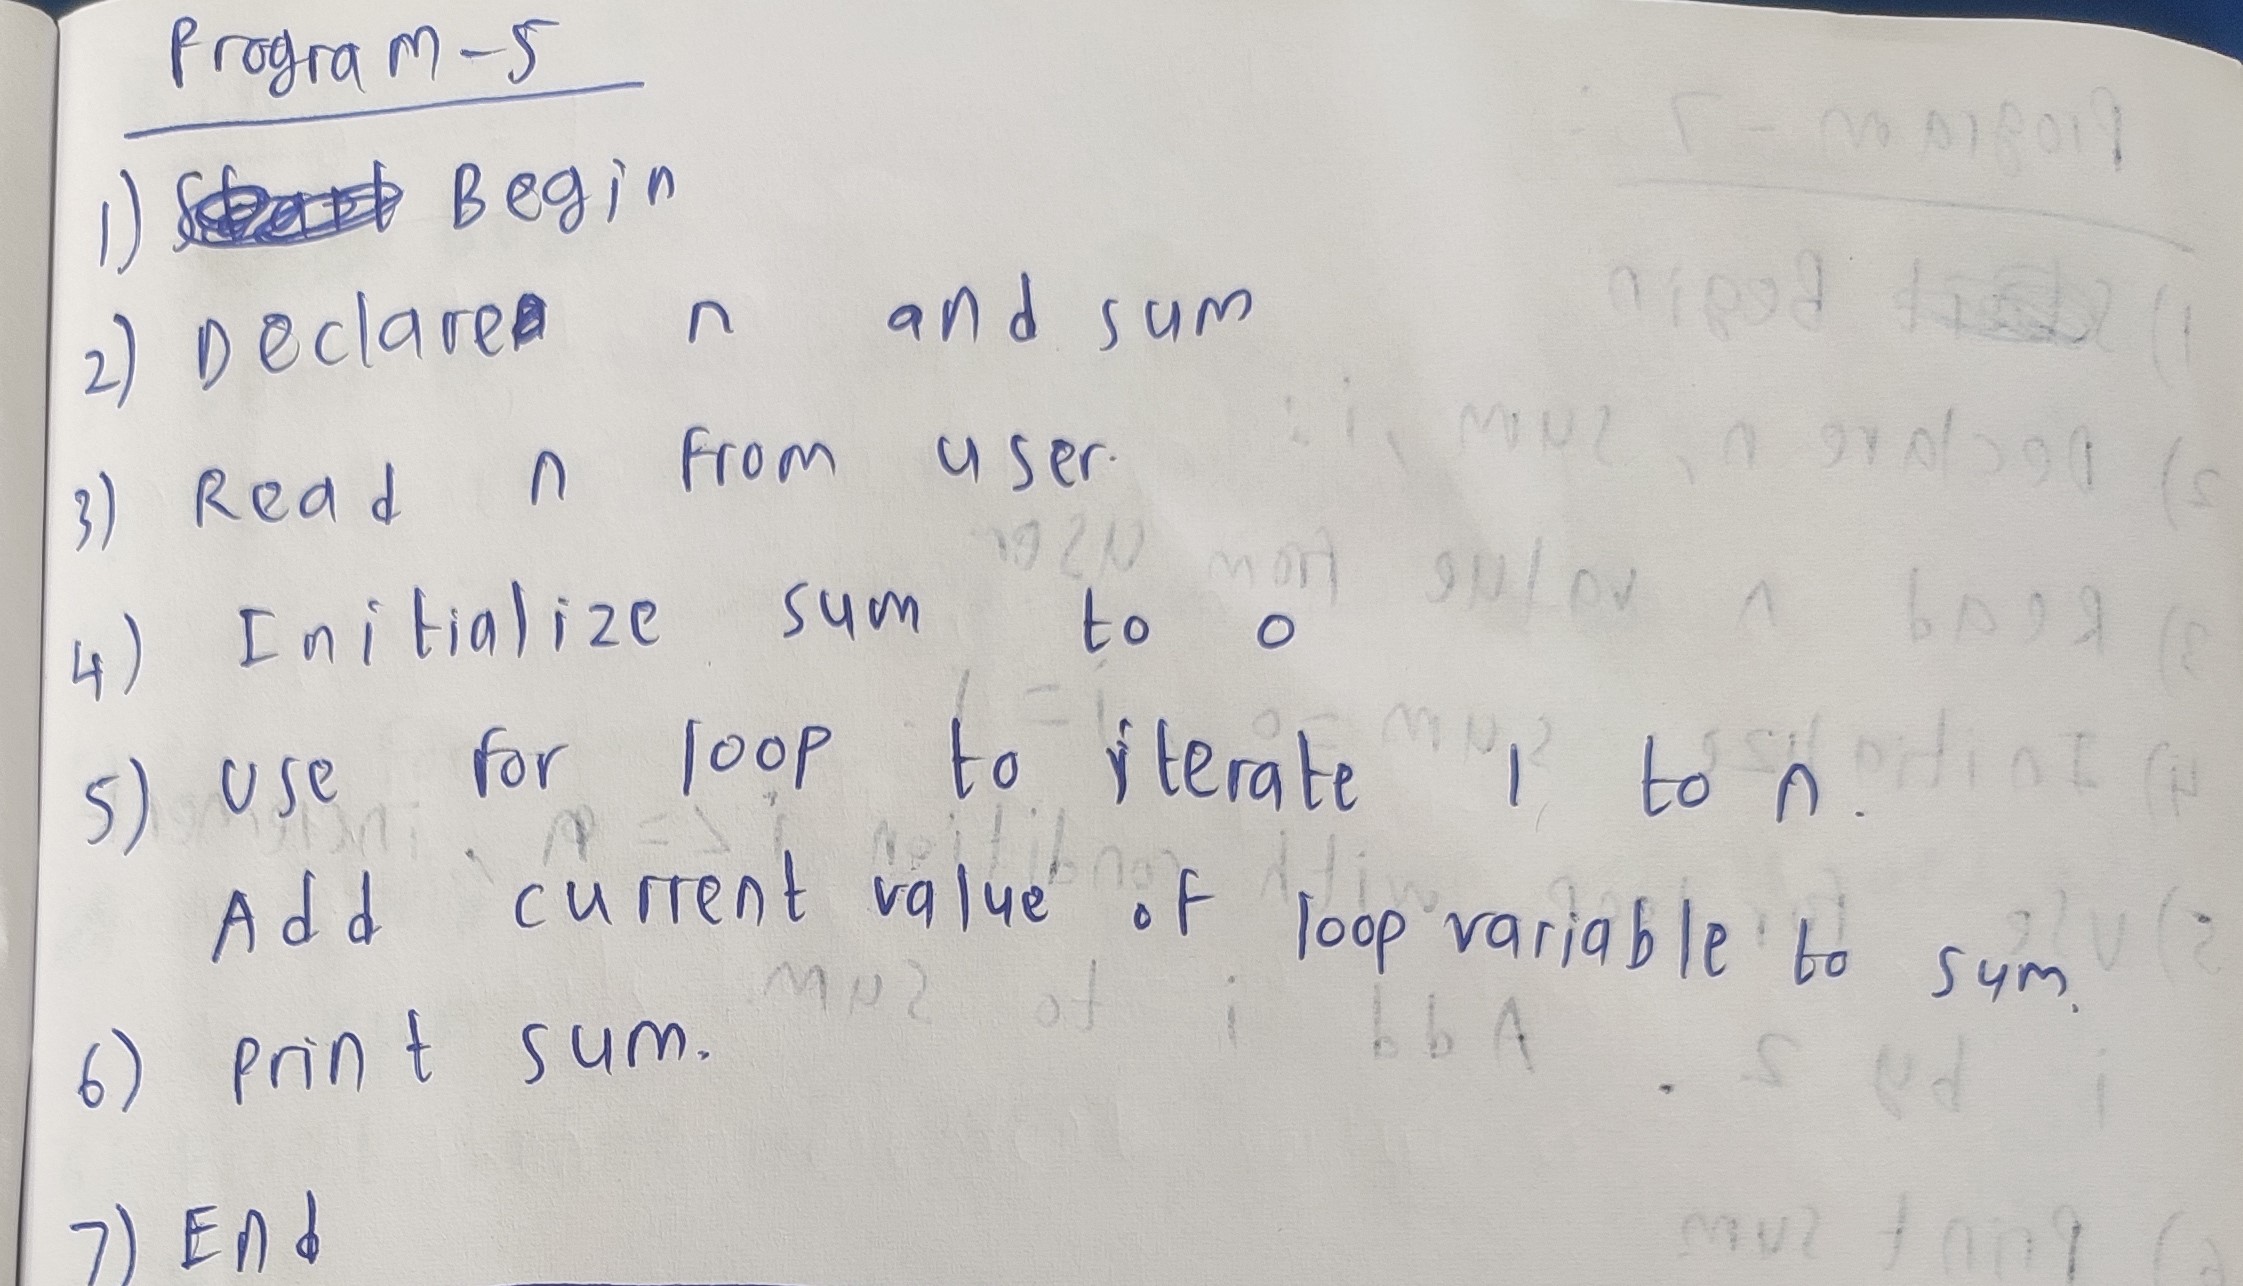 Program-5
1) Begin
2) Declare n and sum
3) Read n from user.
4) Initialize sum to 0
5) Use for loop to iterate 1 to n.
Add current value of loop variable to sum.
6) print sum.
7) End